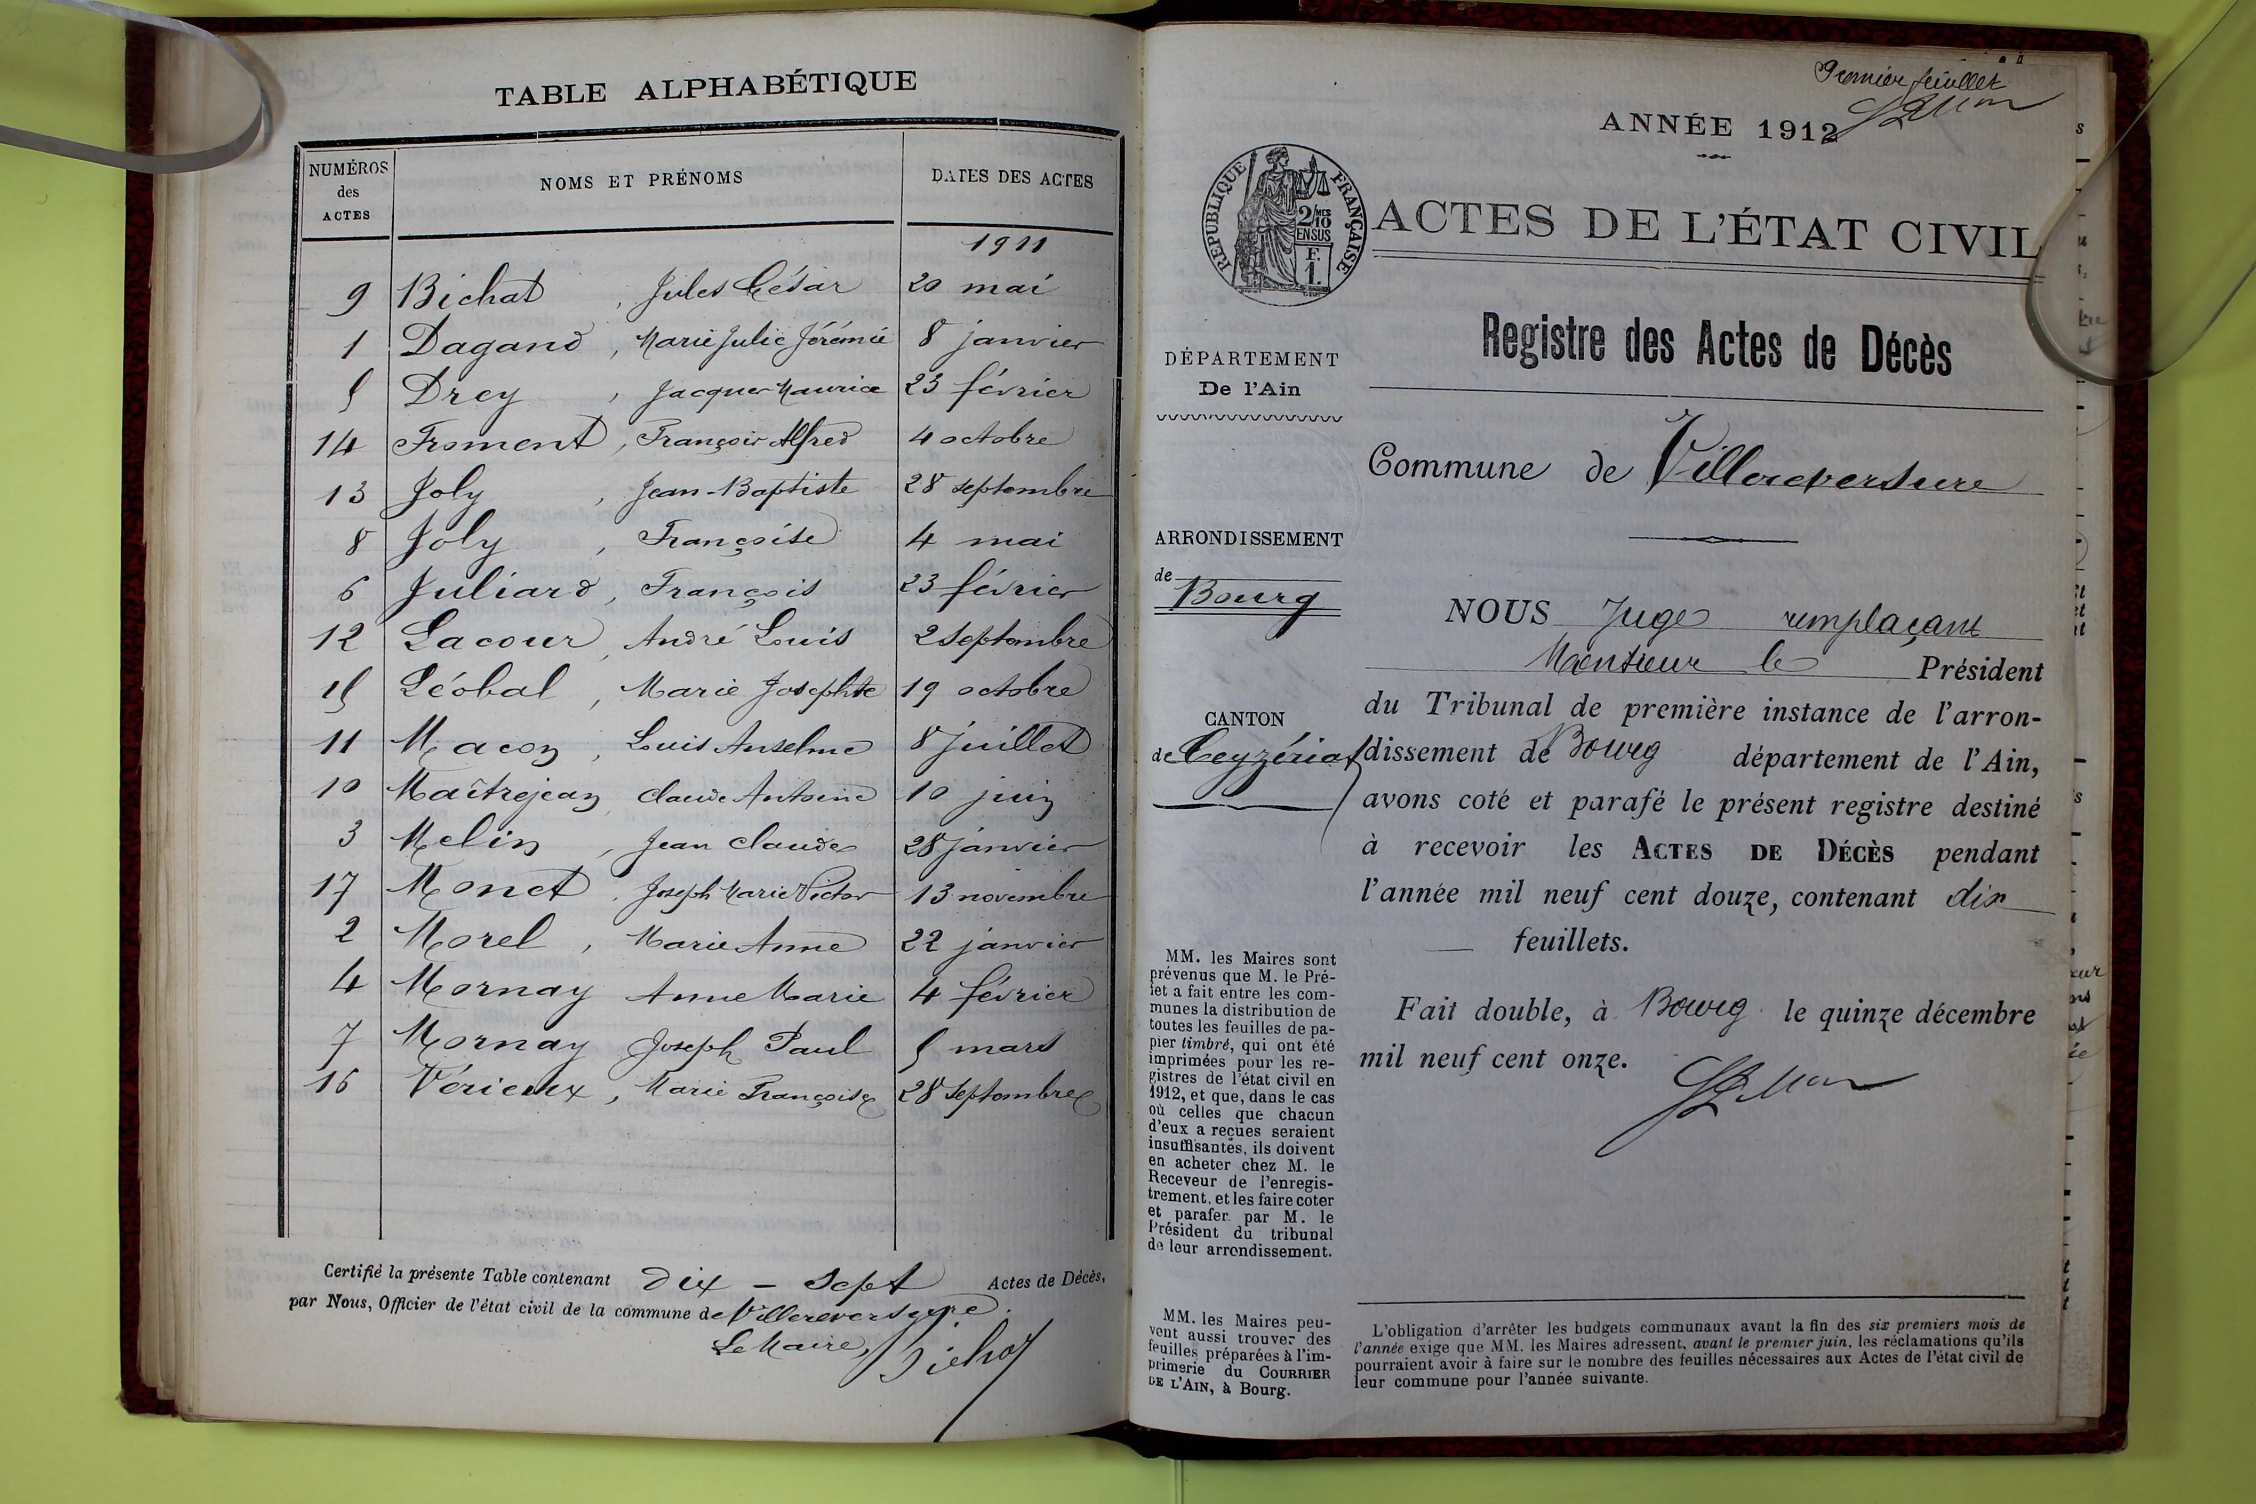 TABLE ALPHABÉTIQUE
NUMÉROS des ACTES
NOMS ET PRÉNOMS
DATES DES ACTES
1911
9 Bichat, Jules César 20 mai
1 Dagand, Marie Julie Jérémie 8 janvier
5 Drey, Jacques Maurice 23 février
14 Froment, François Alfred 4 octobre
13 Joly, Jean-Baptiste 28 septembre
8 Joly, Françoise 4 mai
6 Juliard, François 23 février
12 Lacour, André Louis 2 septembre
15 Léobal, Marie Josephte 19 octobre
11 Macon, Louis Anselme 8 juillet
10 Maîtrejean, Claude Antoine 10 juin
3 Melin, Jean Claude 28 janvier
17 Monet, Joseph Marie Victor 13 novembre
2 Morel, Marie Anne 22 janvier
4 Mornay Anne Marie 4 février
7 Mornay Joseph Paul 5 mars
16 Vérieux, Marie Françoise 28 septembre
Certifié la présente Table contenant dix - sept Actes de Décès,
par Nous, Officier de l'état civil de la commune de Villereversure.
Le Maire, Bichat
Premier feuillet
ANNÉE 1912
REPUBLIQUE FRANÇAISE
2/10 MES
EN SUS
F.
1.
ACTES DE L'ÉTAT CIVIL
Registre des Actes de Décès
DÉPARTEMENT
De l'Ain
Commune de Villereversure
ARRONDISSEMENT
de Bourg
CANTON
de Ceyzériat
NOUS Juge remplaçant
Monsieur le Président
du Tribunal de première instance de l'arron-
dissement de Bourg département de l'Ain,
avons coté et parafé le présent registre destiné
à recevoir les ACTES DE DÉCÈS pendant
l'année mil neuf cent douze, contenant dix
feuillets.
Fait double, à Bourg le quinze décembre
mil neuf cent onze.
MM. les Maires sont
prévenus que M. le Pré-
fet a fait entre les com-
munes la distribution de
toutes les feuilles de pa-
pier timbré, qui ont été
imprimées pour les re-
gistres de l'état civil en
1912, et que, dans le cas
où celles que chacun
d'eux a reçues seraient
insuffisantes, ils doivent
en acheter chez M. le
Receveur de l'enregis-
trement, et les faire coter
et parafer par M. le
Président du tribunal
de leur arrondissement.
MM. les Maires peu-
vent aussi trouver des
feuilles préparées à l'im-
primerie du COURRIER
DE L'AIN, à Bourg.
L'obligation d'arrêter les budgets communaux avant la fin des six premiers mois de
l'année exige que MM. les Maires adressent, avant le premier juin, les réclamations qu'ils
pourraient avoir à faire sur le nombre des feuilles nécessaires aux Actes de l'état civil de
leur commune pour l'année suivante.